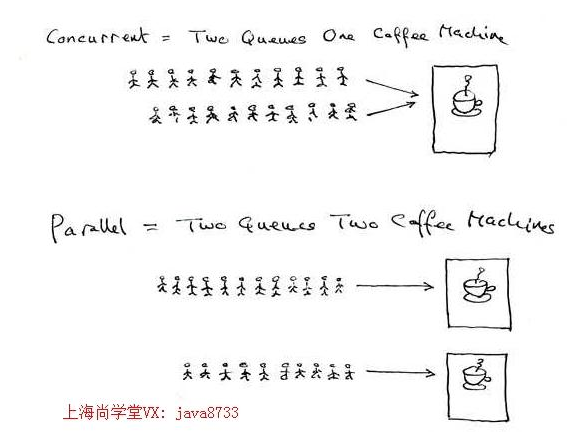 Concurrent = Two Queues One Coffee Machine
Parallel = Two Queues Two Coffee Machines
上海尚学堂VX: java8733